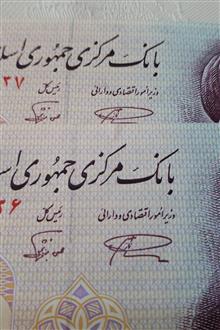 بانک مرکزی جمهوری اسلا
۳۷
رئیس کل
وزیر امور اقتصادی و دارائی
بانک مرکزی جمهوری اسلا
۳۶
رئیس کل
وزیر امور اقتصادی و دارائی